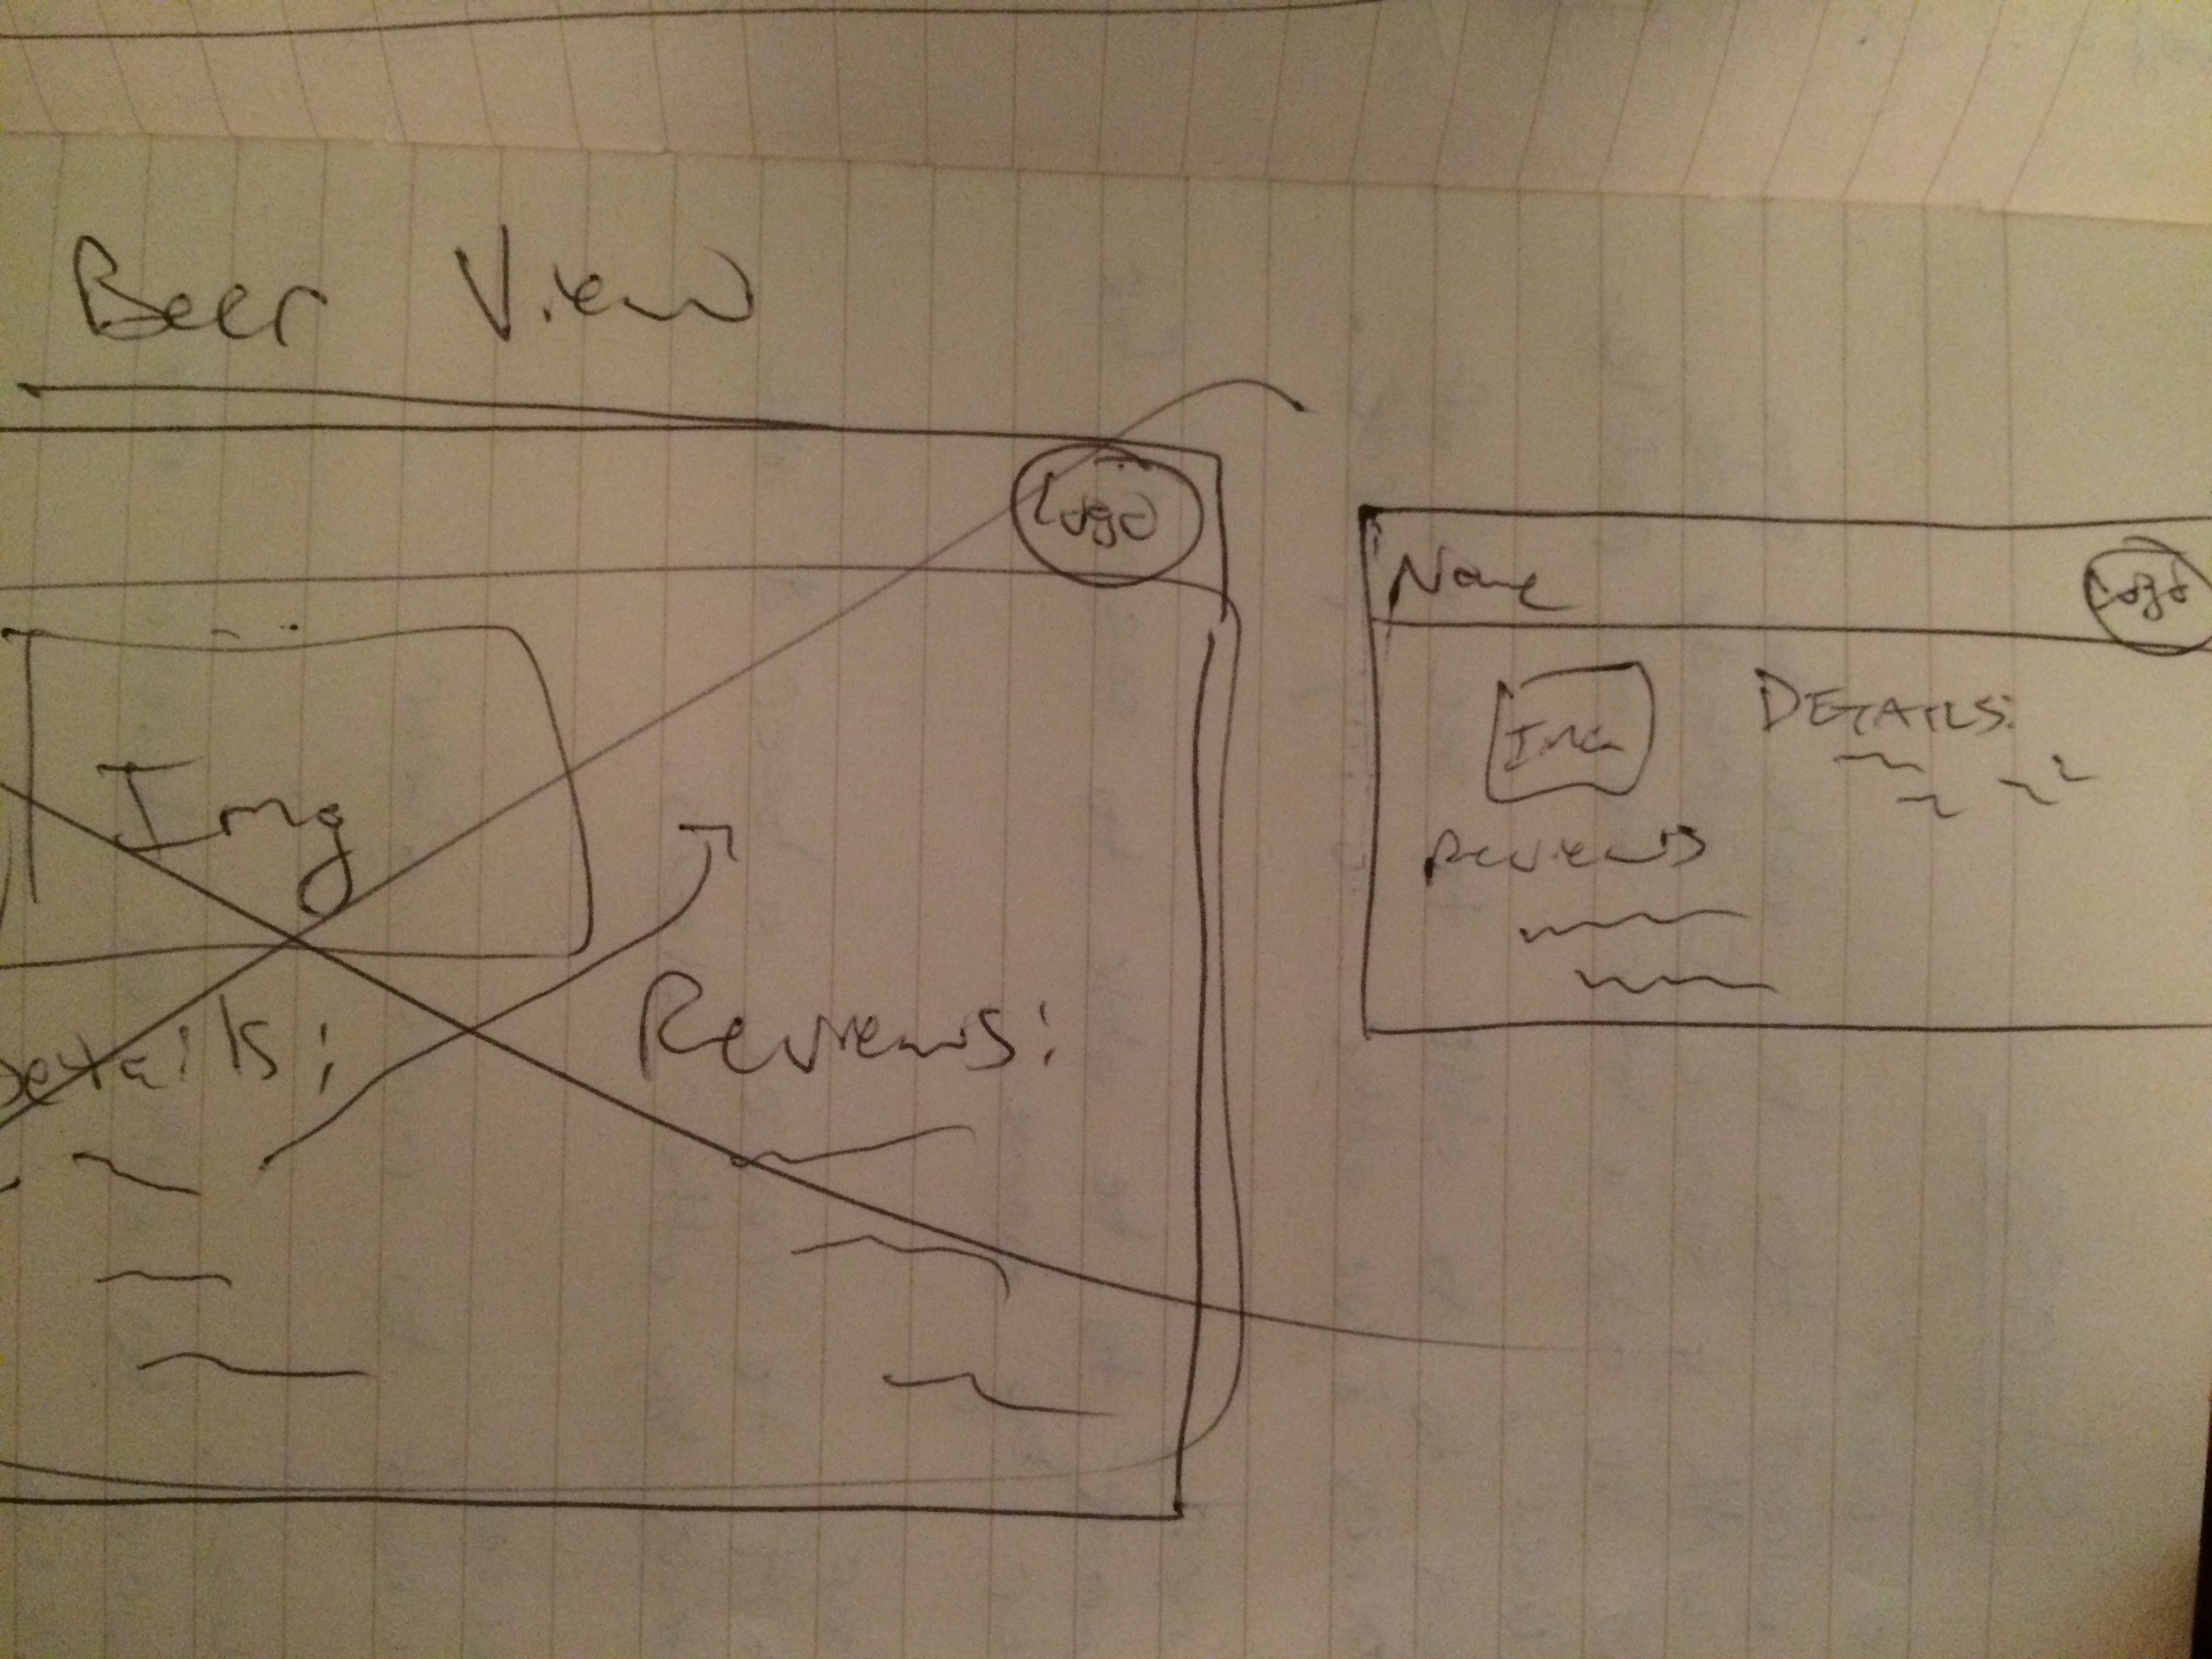 Beer View
Logo
Img
Details:
Reviews:
Name
Logo
Img
DETAILS:
Reviews